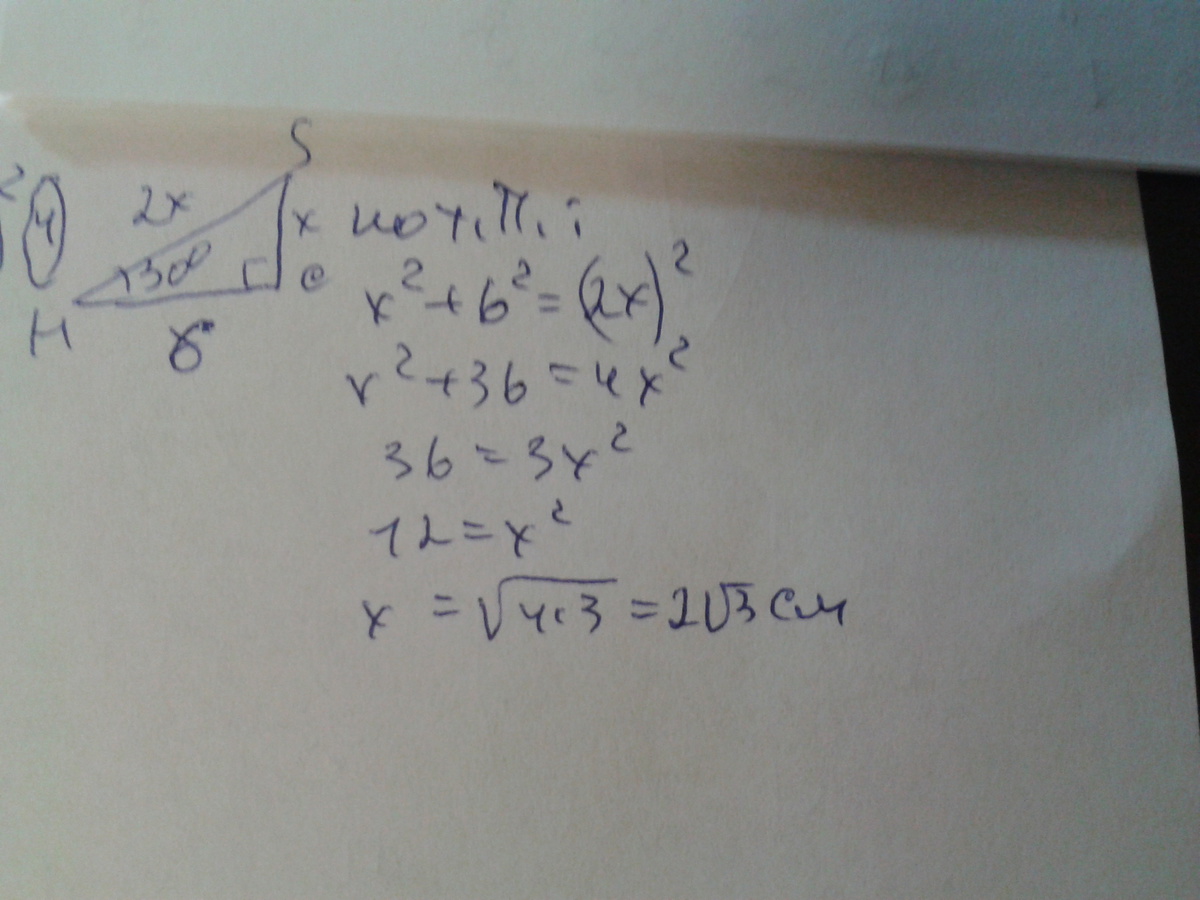 2
4
S
2x
x
30°
C
H
6
по т.П.:
x²+6²=(2x)²
x²+36=4x²
36=3x²
12=x²
x =√4·3=2√3см